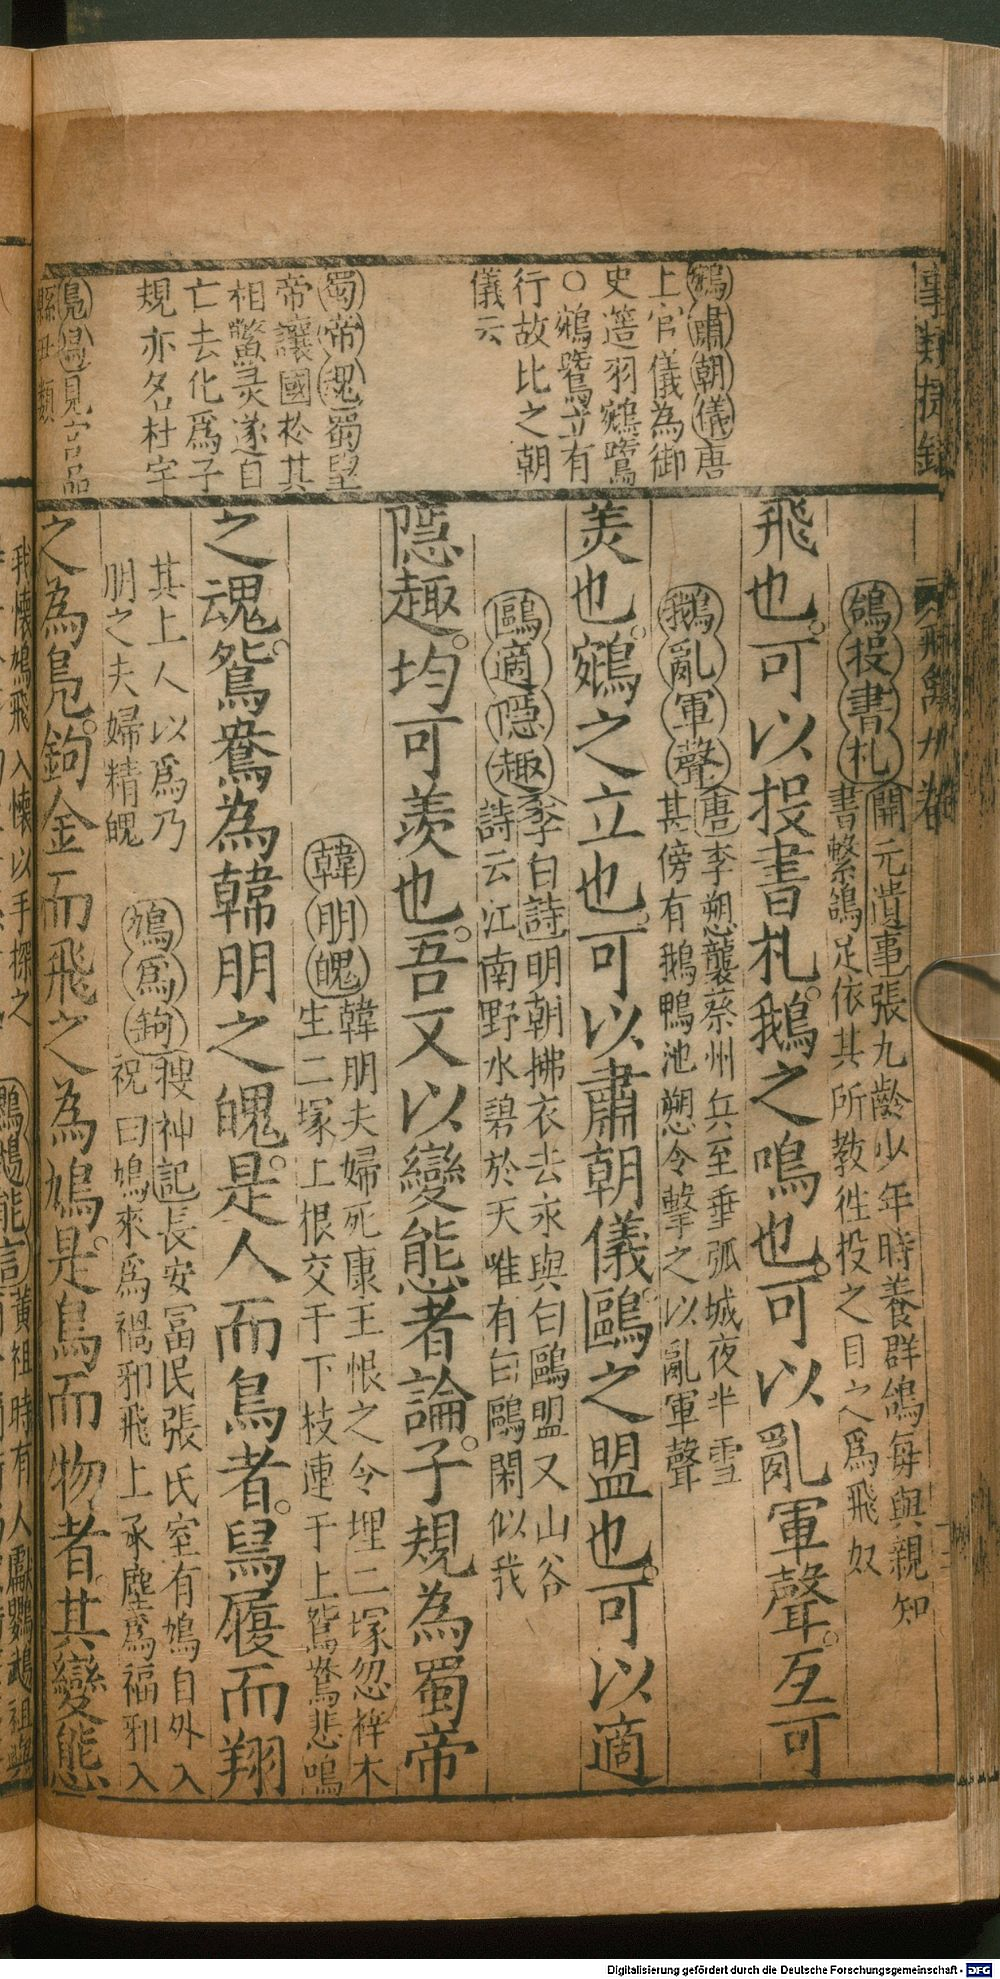 事類捷錄
鵷肅朝儀唐
上官儀為御
史簉羽鵷鷺
○鵷鷺立有
行故比之朝
儀云
蜀帝魂蜀望
帝讓國於其
相鱉灵遂自
亡去化爲子
規亦名杜宇
鳧舄見宫品
縣尹類
飛禽
飛也可以投書札鵝之鳴也可以亂軍聲互可
鴿投書札開元遺事張九齡少年時養群鴿每與親知
書繫鴿足依其所教徃投之目之爲飛奴
鵝亂軍聲唐李愬襲蔡州兵至垂弧城夜半雪
甚傍有鵝鴨池愬令擊之以亂軍聲
羙也鵷之立也可以肅朝儀鷗之盟也可以適
鷗適隱趣李白詩明朝拂衣去永與白鷗盟又山谷
詩云江南野水碧於天唯有白鷗閑似我
隱趣均可羨也吾又以變態者論子規為蜀帝
之魂鴛鴦為韓朋之魄是人而鳥者舃履而翔
韓朋魄韓朋夫婦死康王恨之令埋二塚忽梓木
生二塚上根交于下枝連于上鴛鴦悲鳴
其上人以爲乃
朋之夫婦精魄
鳩爲鉤搜神記長安冨民張氏室有鳩自外入
祝曰鳩來爲禍邪飛上承塵爲福邪入
之為鳧鉤金而飛之為鳩是鳥而物者其變態
我懷鳩飛入懷以手探之
鸚鵡能言黄祖時有人獻鸚鵡祖與
Digitalisierung gefördert durch die Deutsche Forschungsgemeinschaft - DFG